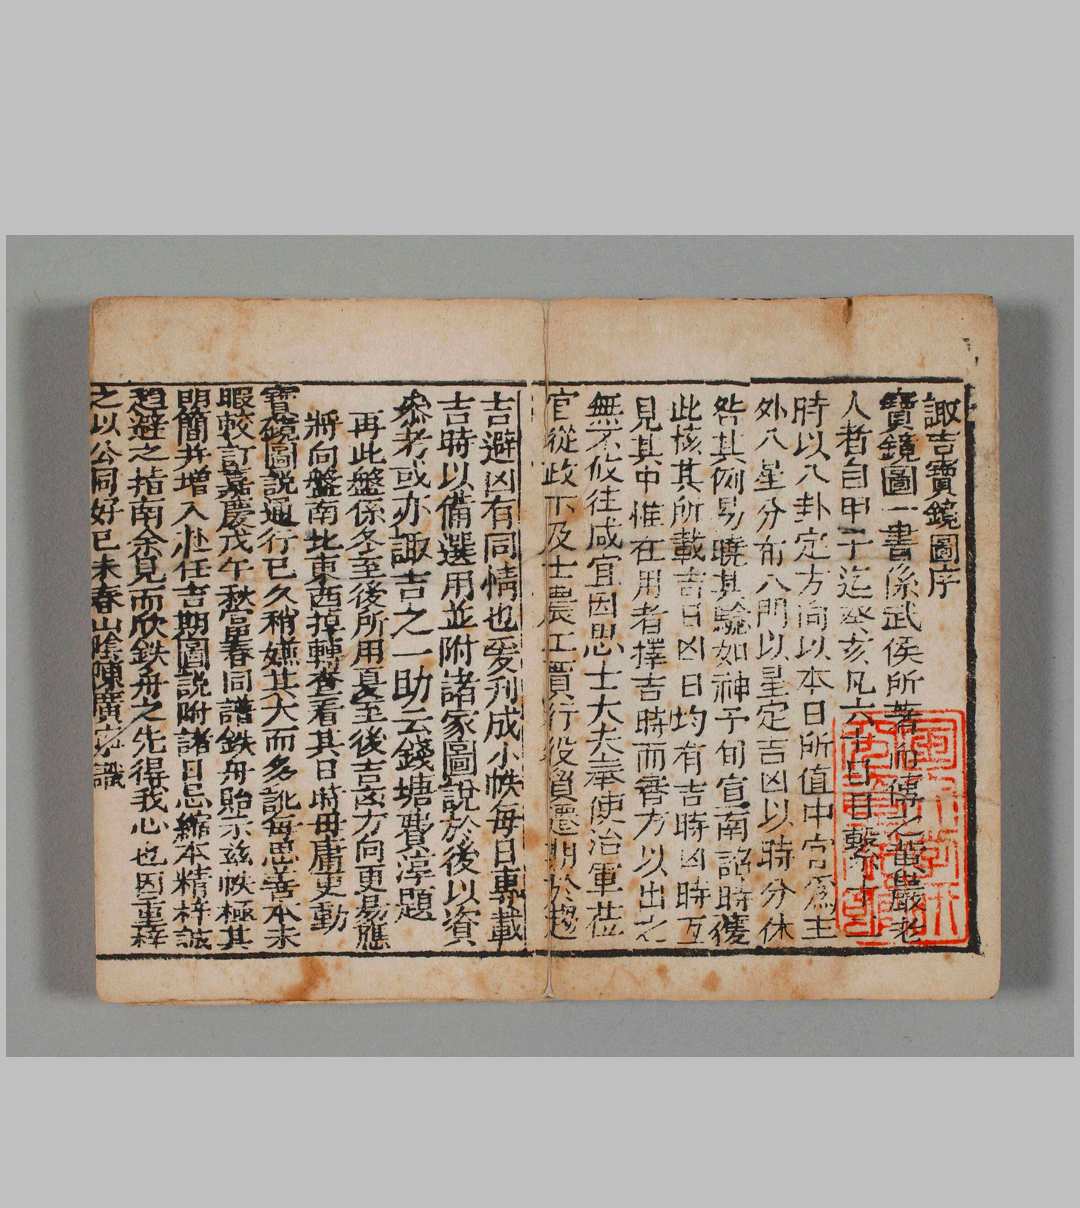 諏吉寶鏡圖序
寶鏡圖一書係武侯所著而傳之黃嚴老
人者自甲子迄癸亥凡六十日日繫十二
時以八卦定方向以本日所值中宮爲主
外八星分布八門以星定吉凶以時分休
咎其例易曉其驗如神予旬宣南詔時獲
此核其所載吉日凶日均有吉時凶時互
見其中惟在用者擇吉時而審方以出之
無不攸往咸宜因思士大夫奉使治軍莅
官從政下及士農工賈行役貿遷期於趨
吉避凶有同情也爰刋成小帙每日專載
吉時以備選用並附諸家圖說於後以資
叅考或亦諏吉之一助云錢塘費淳題
再此盤係冬至後所用夏至後吉凶方向更易應
將向盤南北東西掉轉查看其日時毋庸更動
寶鏡圖說通行已久稍嫌其大而多訛每思善本未
暇較訂嘉慶戊午秋富春同譜鉄舟貽示兹帙極其
明簡并增入赴任吉期圖說附諸日忌縮本精梓誠
趨避之指南余見而欣鉄舟之先得我心也因重梓
之以公同好己未春山陰陳廣寧識